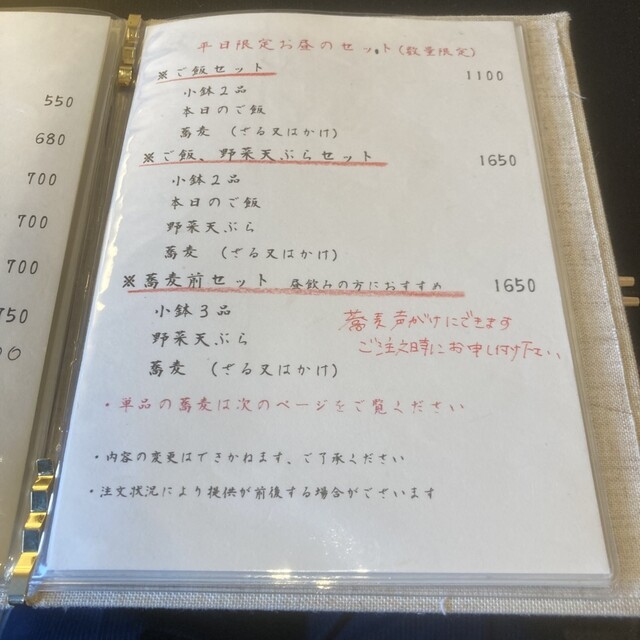 550
680
700
700
700
750
平日限定お昼のセット(数量限定)
※ご飯セット 1100
小鉢2品
本日のご飯
蕎麦 (ざる又はかけ)
※ご飯、野菜天ぷらセット 1650
小鉢2品
本日のご飯
野菜天ぷら
蕎麦 (ざる又はかけ)
※蕎麦前セット 昼飲みの方におすすめ 1650
小鉢3品
野菜天ぷら
蕎麦 (ざる又はかけ)
蕎麦声がけにできます
ご注文時にお申し付け下さい
・単品の蕎麦は次のページをご覧ください
・内容の変更はできかねます、ご了承ください
・注文状況により提供が前後する場合がございます